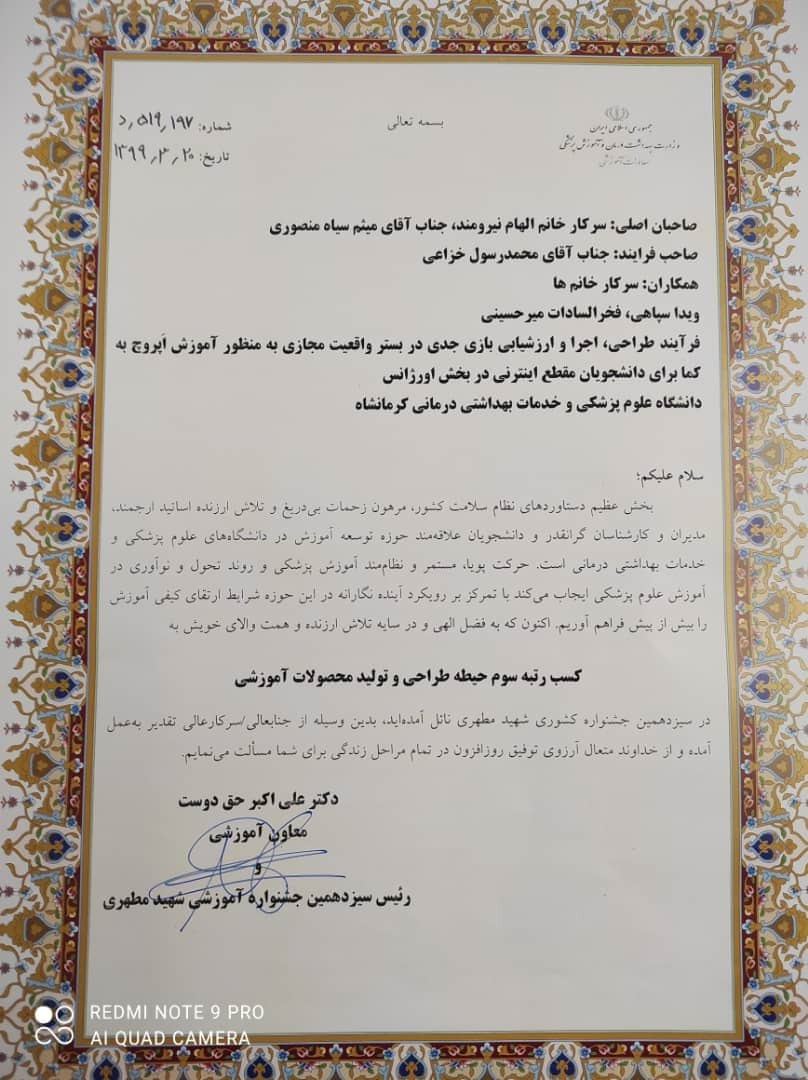 بسمه تعالی
جمهوری اسلامی ایران
وزارت بهداشت درمان و آموزش پزشکی
معاونت آموزشی
شماره: ۵۱۹٫۱۹۷٫د
تاریخ: ۱۳۹۹٫۳٫۲۰
صاحبان اصلی: سرکار خانم الهام نیرومند، جناب آقای میثم سیاه منصوری
صاحب فرایند: جناب آقای محمدرسول خزاعی
همکاران: سرکار خانم ها
ویدا سپاهی، فخرالسادات میرحسینی
فرآیند طراحی، اجرا و ارزشیابی بازی جدی در بستر واقعیت مجازی به منظور آموزش اَپروچ به
کما برای دانشجویان مقطع اینترنی در بخش اورژانس
دانشگاه علوم پزشکی و خدمات بهداشتی درمانی کرمانشاه
سلام علیکم؛
بخش عظیم دستاوردهای نظام سلامت کشور، مرهون زحمات بی‌دریغ و تلاش ارزنده اساتید ارجمند،
مدیران و کارشناسان گرانقدر و دانشجویان علاقه‌مند حوزه توسعه آموزش در دانشگاه‌های علوم پزشکی و
خدمات بهداشتی درمانی است. حرکت پویا، مستمر و نظام‌مند آموزش پزشکی و روند تحول و نوآوری در
آموزش علوم پزشکی ایجاب می‌کند با تمرکز بر رویکرد آینده نگارانه در این حوزه شرایط ارتقای کیفی آموزش
را بیش از پیش فراهم آوریم. اکنون که به فضل الهی و در سایه تلاش ارزنده و همت والای خویش به
کسب رتبه سوم حیطه طراحی و تولید محصولات آموزشی
در سیزدهمین جشنواره کشوری شهید مطهری نائل آمده‌اید، بدین وسیله از جنابعالی/سرکارعالی تقدیر به‌عمل
آمده و از خداوند متعال آرزوی توفیق روزافزون در تمام مراحل زندگی برای شما مسألت می‌نمایم.
دکتر علی اکبر حق دوست
معاون آموزشی
و
رئیس سیزدهمین جشنواره آموزشی شهید مطهری
REDMI NOTE 9 PRO
AI QUAD CAMERA